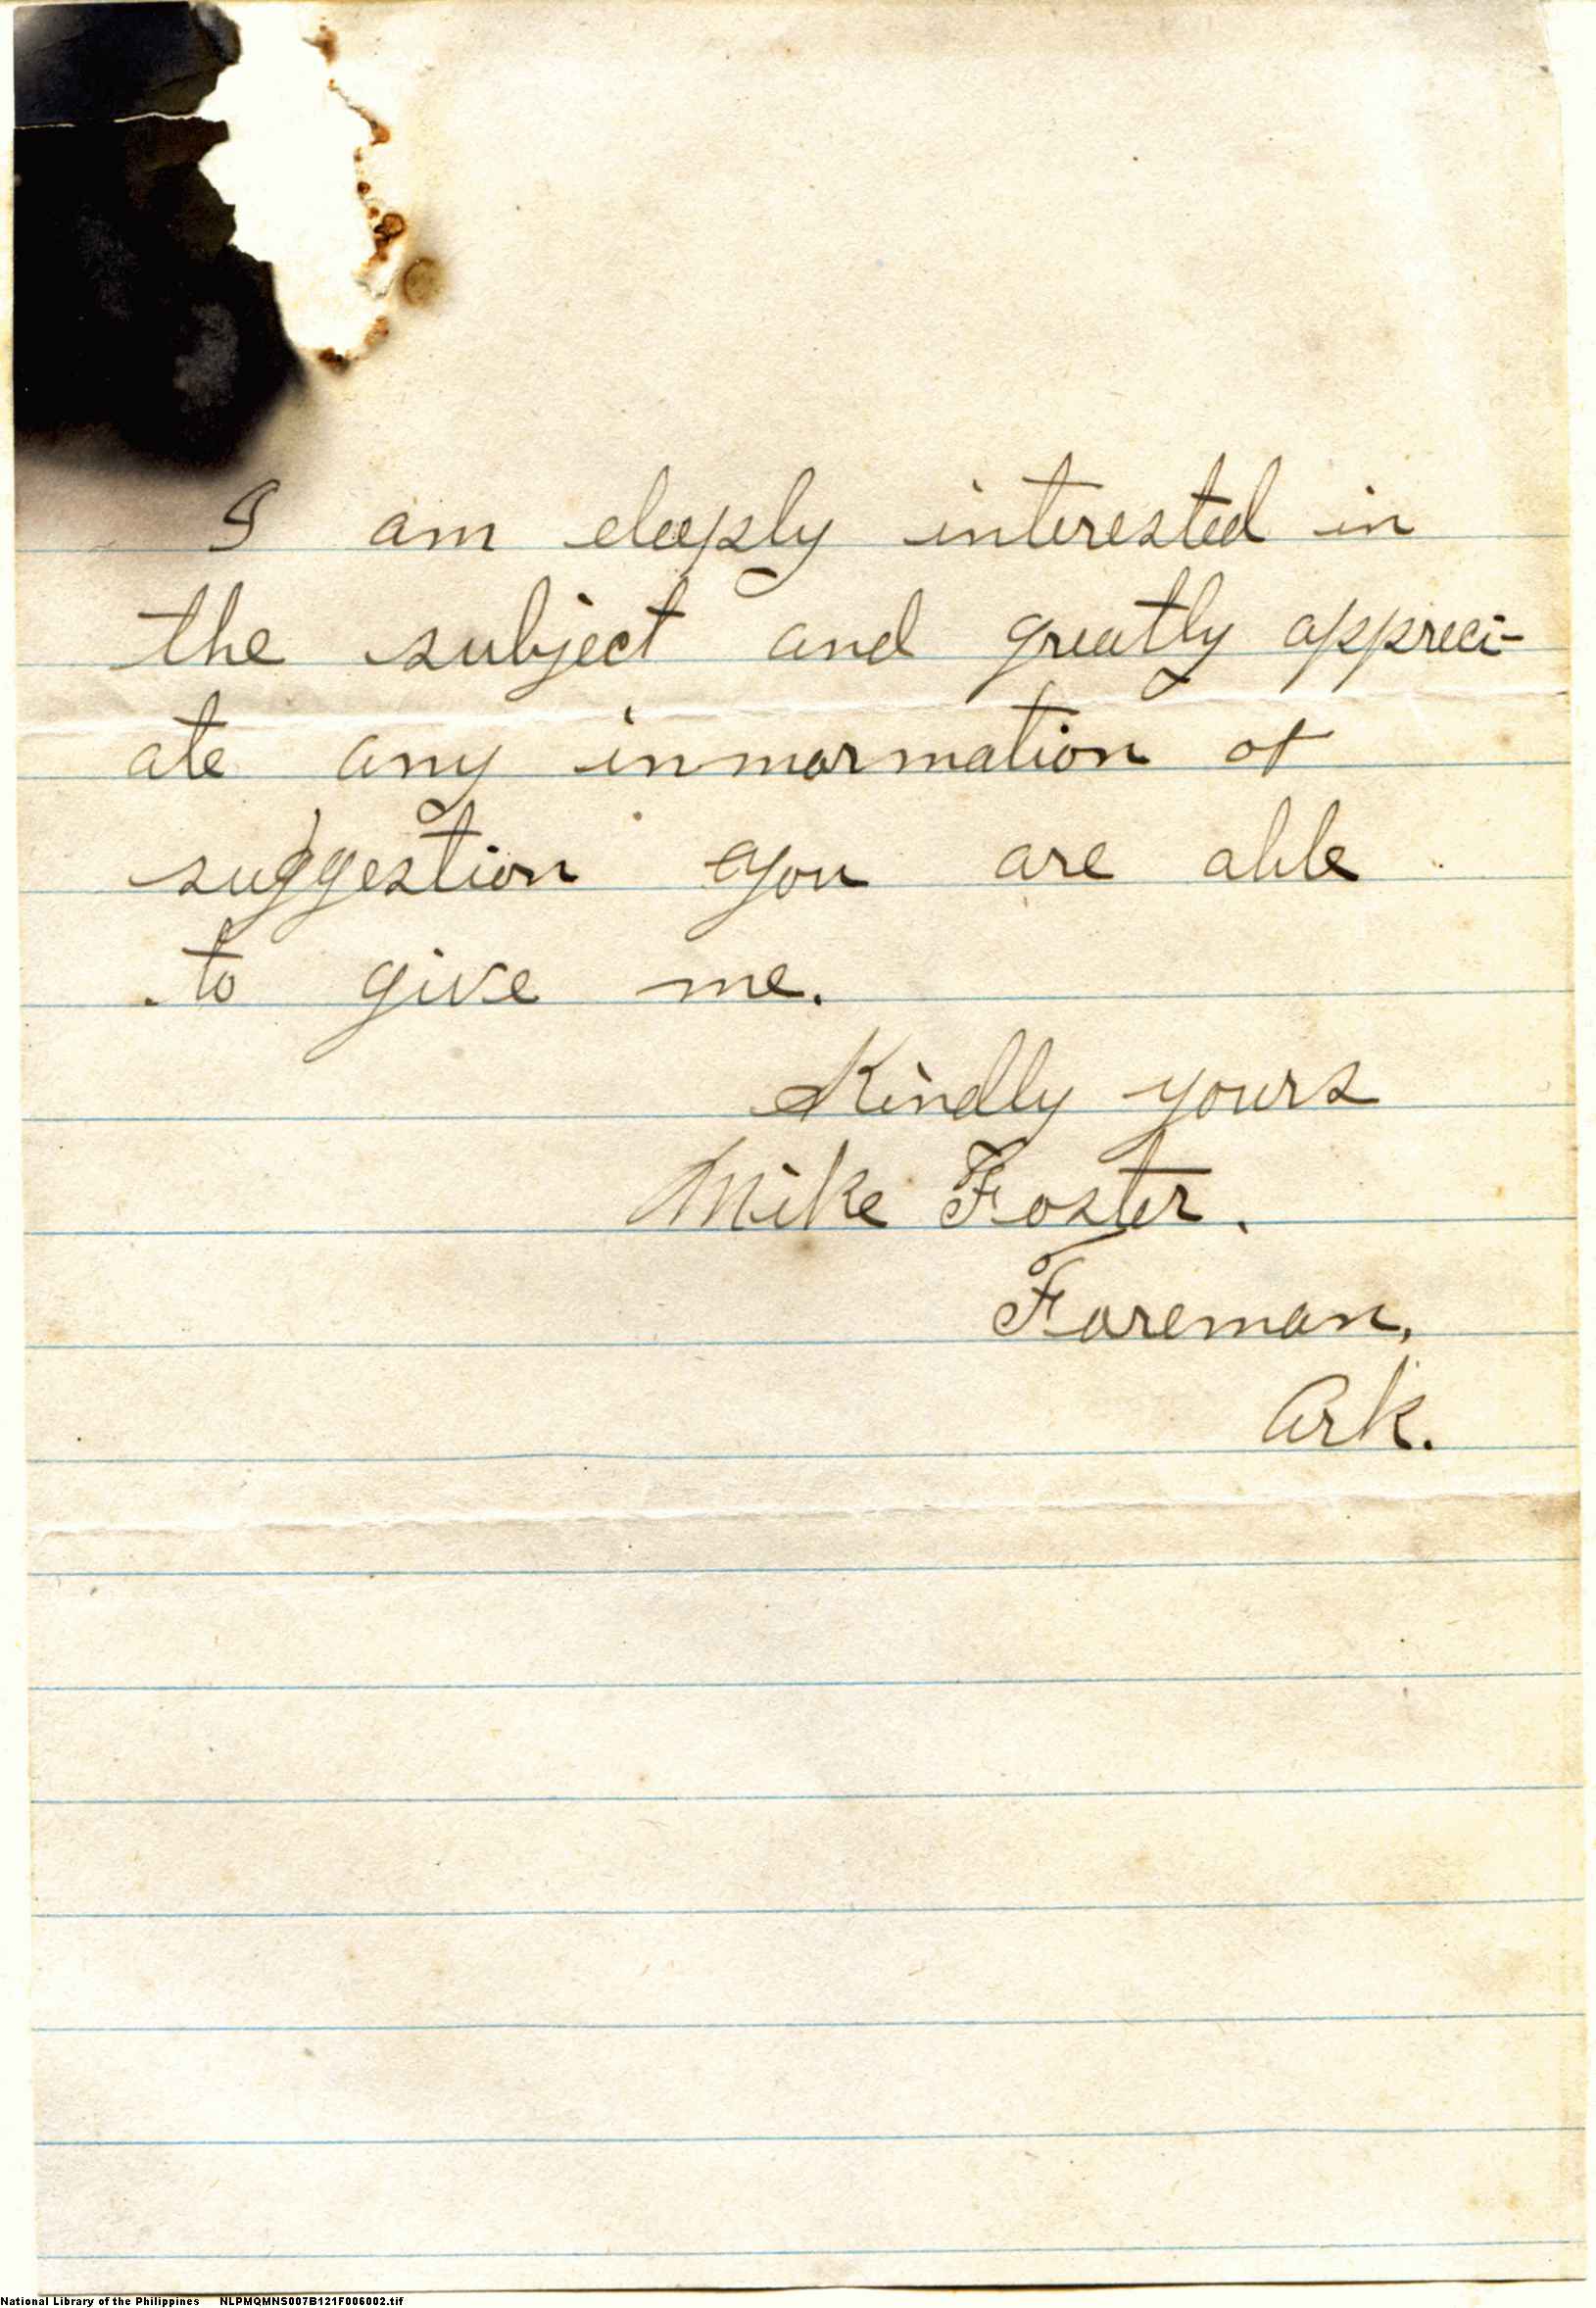 I am deeply interested in
the subject and greatly appreci-
ate any inmormation or
suggestion you are able
to give me.
Kindly yours
Mike Foster.
Foreman,
Ark.
National Library of the Philippines NLPMQMNS007B121F006002.tif